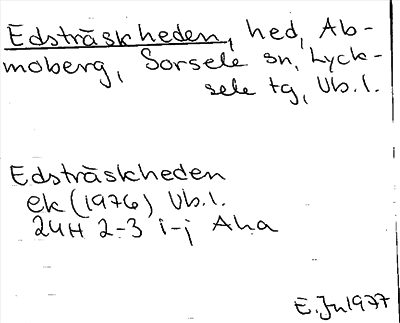 Edsträskheden, hed, Ab-
moberg, Sorsele sn, Lyck-
sele tg, Vb.l.
Edsträskheden
ek (1976) Vb.l.
24H 2-3 i-j Aha
E. Jn 1977